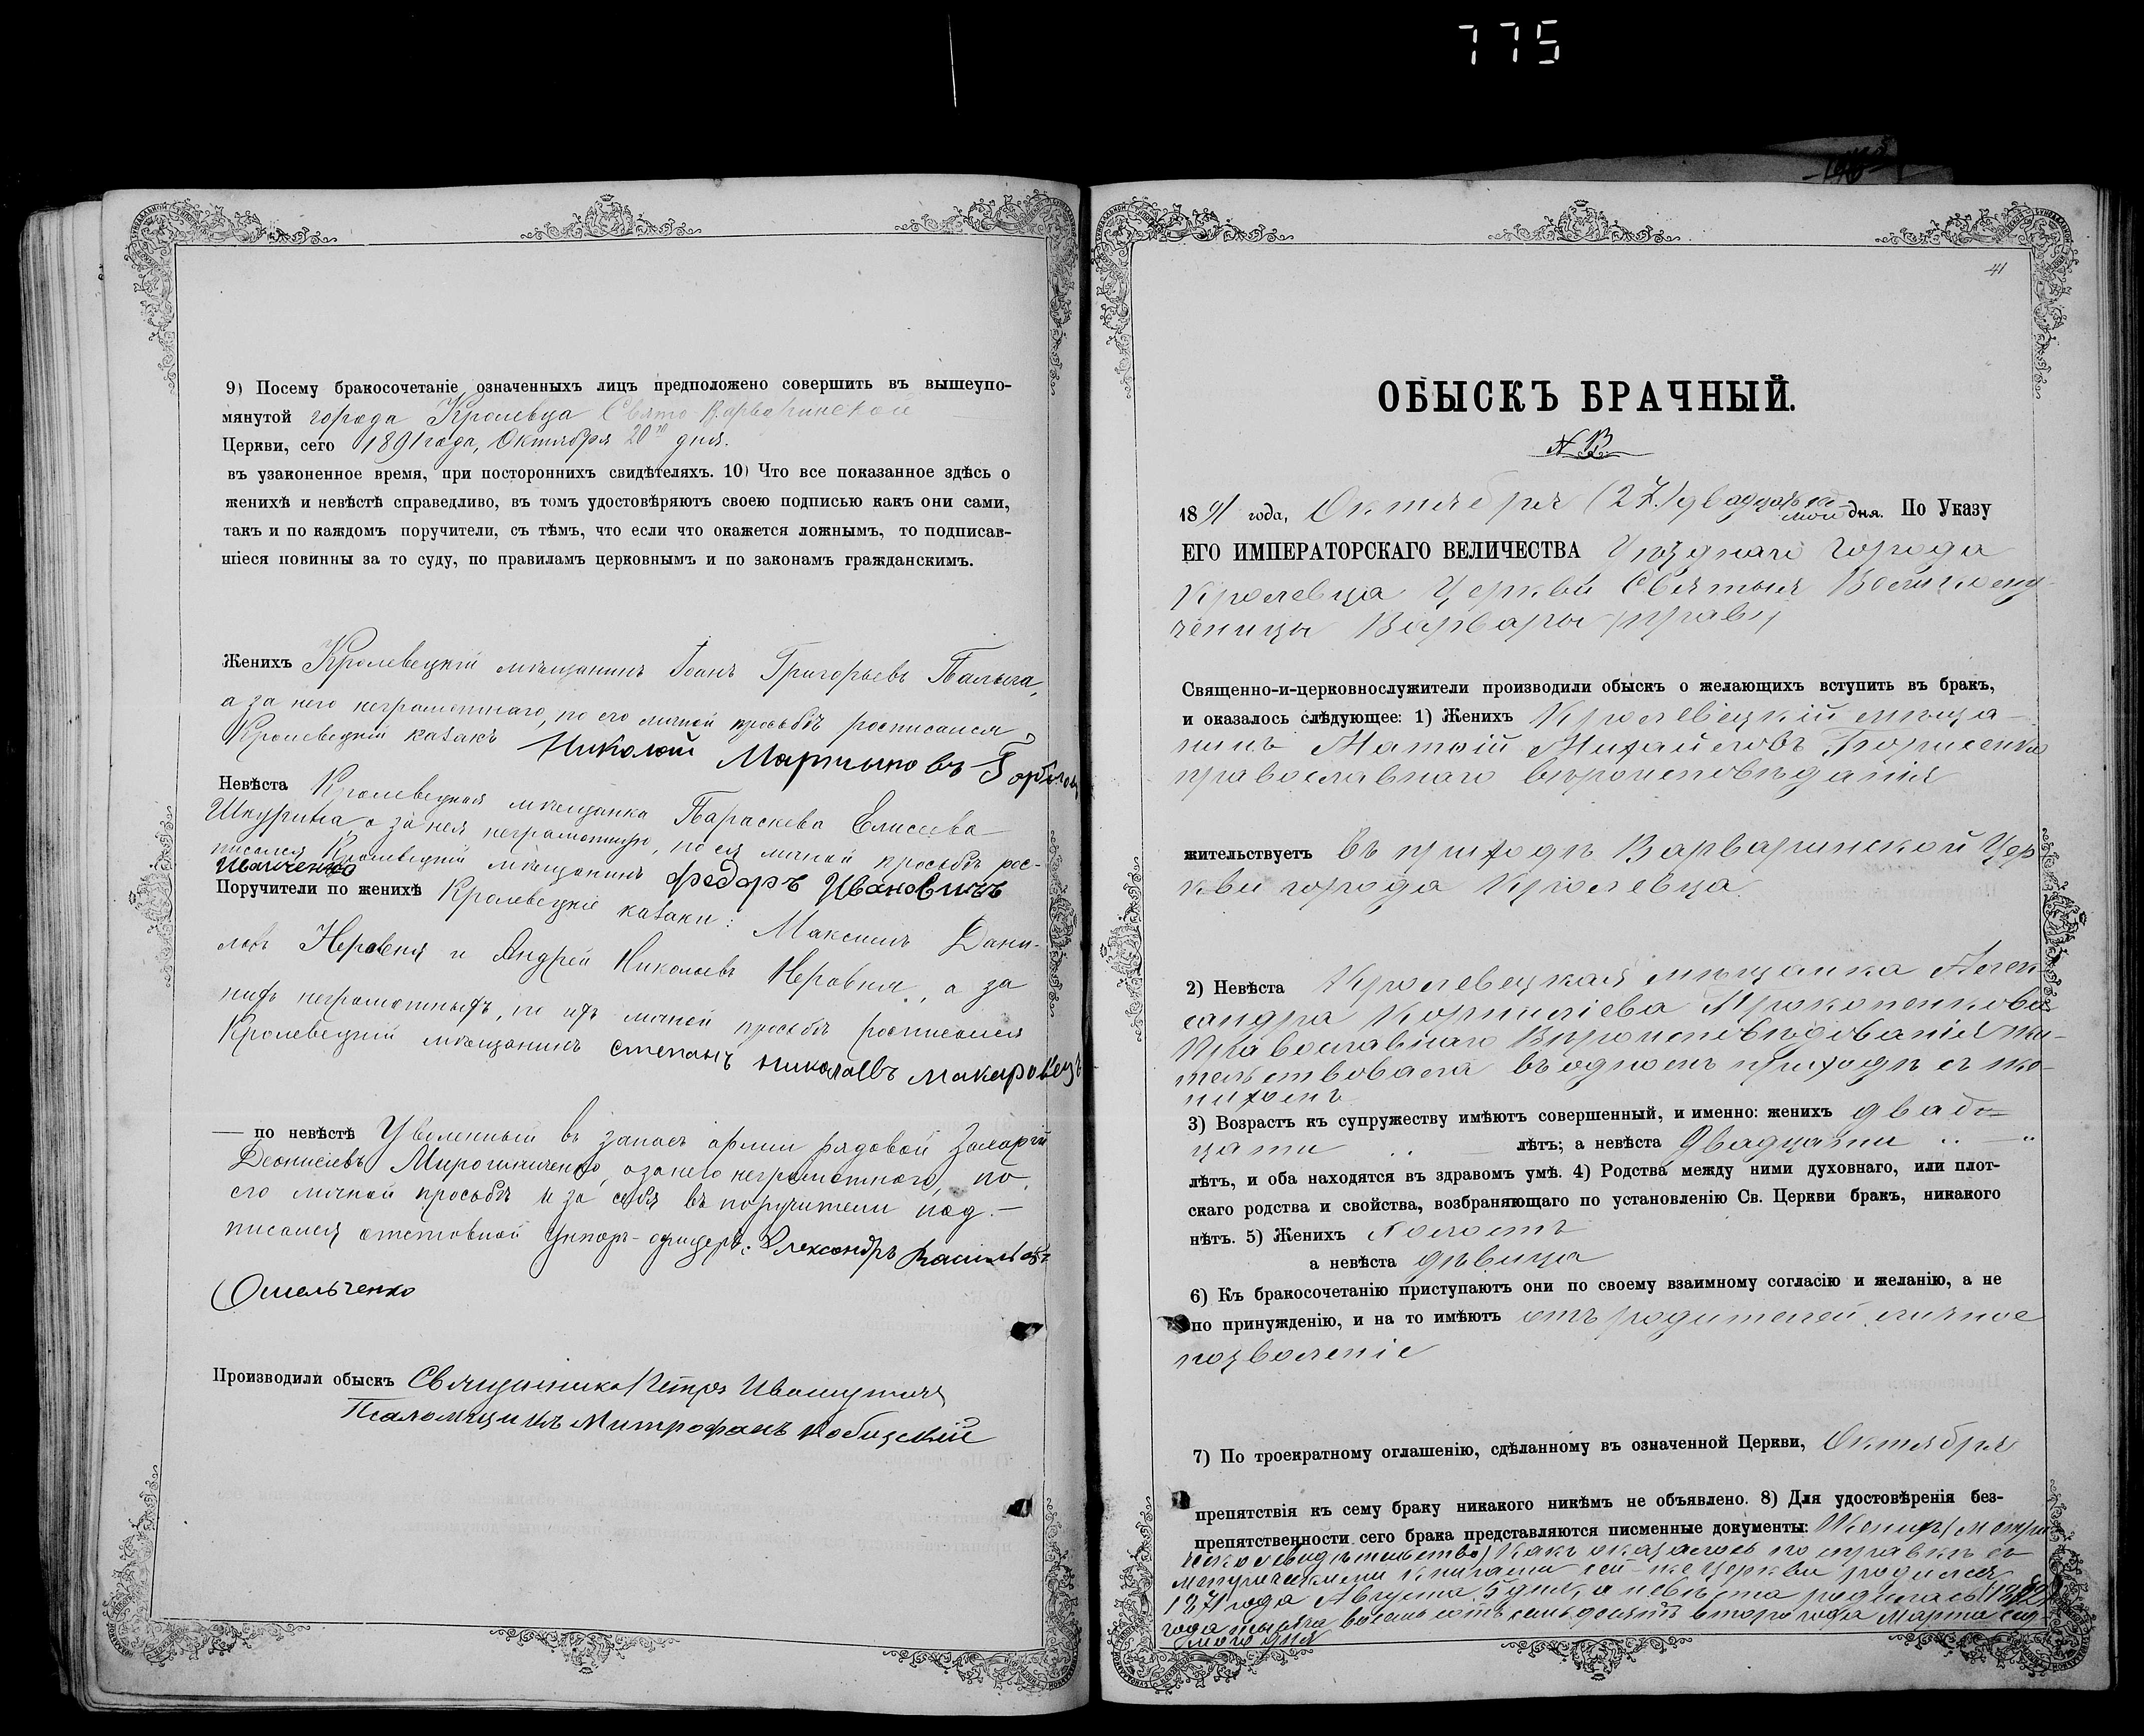 775
9) Посему бракосочетаніе означенныхъ лицъ предположено совершить въ вышеупо-
мянутой города Кролевца Свято Варваринской
Церкви, сего 1891 года, Октября 20го дня.
въ узаконенное время, при постороннихъ свидѣтеляхъ. 10) Что все показанное здѣсь о
женихѣ и невѣстѣ справедливо, въ томъ удостовѣряютъ своею подписью какъ они сами,
такъ и по каждомъ поручители, съ тѣмъ, что если что окажется ложнымъ, то подписав-
шіеся повинны за то суду, по правиламъ церковнымъ и по законамъ гражданскимъ.
Женихъ Кролевецкій мѣщанинъ Іоанъ Григорьевъ Палыга,
а за него неграмотнаго, по его личной просьбѣ росписался
Кролевецкій казакъ Николай Мартыновъ
Невѣста Кролевецкая мѣщанка Параскева Елисеева
а за нея неграмотную, по ея личной просьбѣ рос-
писался Кролевецкій мѣщанинъ Федоръ Ивановичъ
Иванченко
Поручители по женихѣ Кролевецкіе казаки: Максимъ Дани-
ловъ Неровня и Андрей Николаевъ Неровня, а за
нихъ неграмотныхъ, по ихъ личной просьбѣ росписался
Кролевецкій мѣщанинъ Степанъ Николаевъ Макаровецъ
— по невѣстѣ Уволенный въ запасъ арміи рядовой Захарій
Деонисіевъ Мирошниченко, а за него неграмотнаго, по
его личной просьбѣ и за себя въ поручители под-
писался отставной Унтеръ-офицеръ: Александръ Васильевъ
Омельченко
Производили обыскъ Священникъ Петръ
Псаломщикъ Митрофанъ
41
ОБЫСКЪ БРАЧНЫЙ.
1891 года, Октября (27.) двадцать седь-
мой дня. По Указу
ЕГО ИМПЕРАТОРСКАГО ВЕЛИЧЕСТВА Уѣзднаго города
Кролевца Церкви Святыя Великому-
ченицы Варвары
Священно-и-церковнослужители производили обыскъ о желающихъ вступить въ бракъ,
и оказалось слѣдующее: 1) Женихъ Кролевецкій мѣща-
нинъ Матѳій Михайловъ Борисенко
православнаго вѣроисповѣданія
жительствуетъ въ приходѣ Варваринской Цер
кви города Кролевца.
2) Невѣста Кролевецкая мѣщанка Алек-
сандра Корниліева Прокопенкова
Православнаго Вѣроисповѣдованія жи-
тельствовала въ одномъ приходѣ съ же-
нихомъ
3) Возрастъ къ супружеству имѣютъ совершенный, и именно: женихъ двад-
цати лѣтъ; а невѣста Двадцати
лѣтъ, и оба находятся въ здравомъ умѣ. 4) Родства между ними духовнаго, или плот-
скаго родства и свойства, возбраняющаго по установленію Св. Церкви бракъ, никакого
нѣтъ. 5) Женихъ холостъ
а невѣста дѣвица
6) Къ бракосочетанію приступаютъ они по своему взаимному согласію и желанію, а не
по принужденію, и на то имѣютъ отъ родителей личное
позволеніе
7) По троекратному оглашенію, сдѣланному въ означенной Церкви, Октября
препятствія къ сему браку никакого никѣмъ не объявлено. 8) Для удостовѣренія без-
препятственности сего брака представляются писменные документы: Жениха (метри
ческо свидѣтельство) какъ оказалось по справкѣ съ
метрическими книгами сей-же церкви родился
1871 года Августа 5 дня, а невѣста родилась (1872)
года тысяча восемьсотъ семьдесятъ второго года Марта